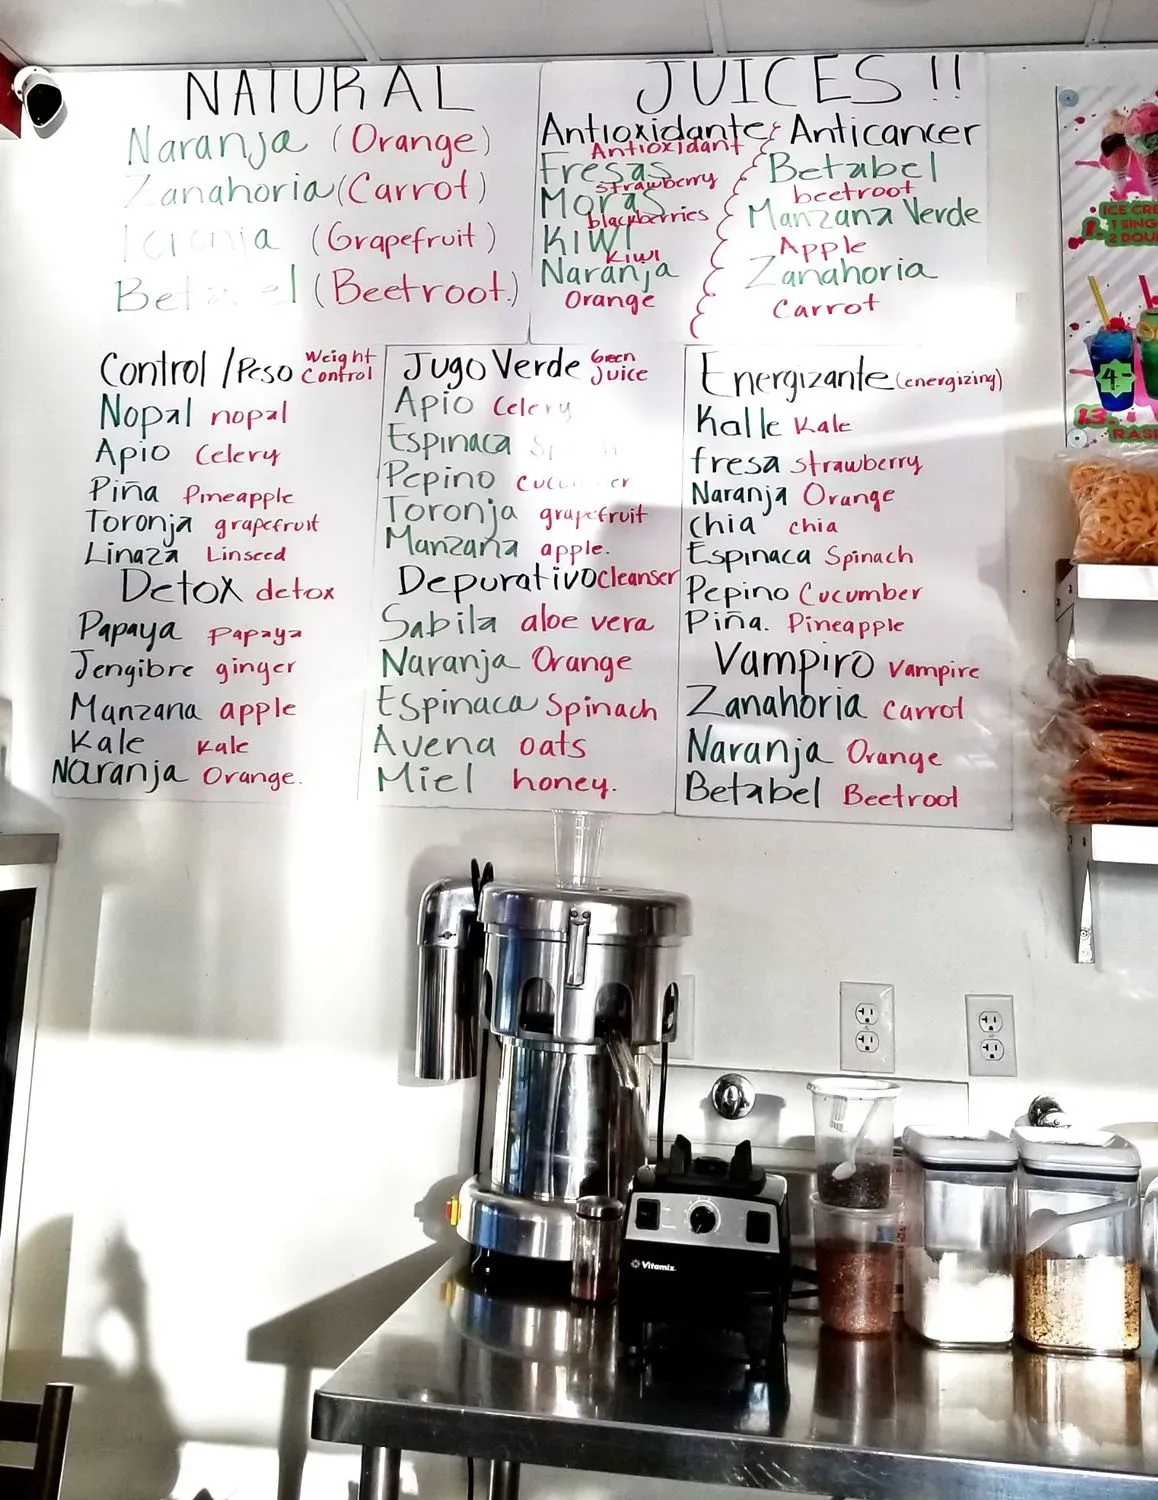 NATURAL JUICES !!
Naranja (Orange)
Zanahoria (Carrot)
(Grapefruit)
(Beetroot.)
Antioxidante
Antioxidant
Fresas
strawberry
Moras
blackberries
KIWI
KIWI
Naranja
Orange
Anticancer
Betabel
beetroot
Manzana Verde
Apple
Zanahoria
Carrot
Control / Peso Weight Control
Nopal nopal
Apio Celery
Piña Pineapple
Toronja grapefruit
Linaza Linseed
Detox detox
Papaya Papaya
Jengibre ginger
Manzana apple
Kale Kale
Naranja Orange.
Jugo Verde Green Juice
Apio Celery
Espinaca
Pepino
Toronja grapefruit
Manzana apple.
Depurativo Cleanser
Sabila aloe vera
Naranja Orange
Espinaca Spinach
Avena oats
Miel honey.
Energizante (energizing)
Kalle Kale
fresa strawberry
Naranja Orange
chia chia
Espinaca Spinach
Pepino Cucumber
Piña. Pineapple
Vampiro Vampire
Zanahoria Carrot
Naranja Orange
Betabel Beetroot
ICE
1
2
4-
Vitamix